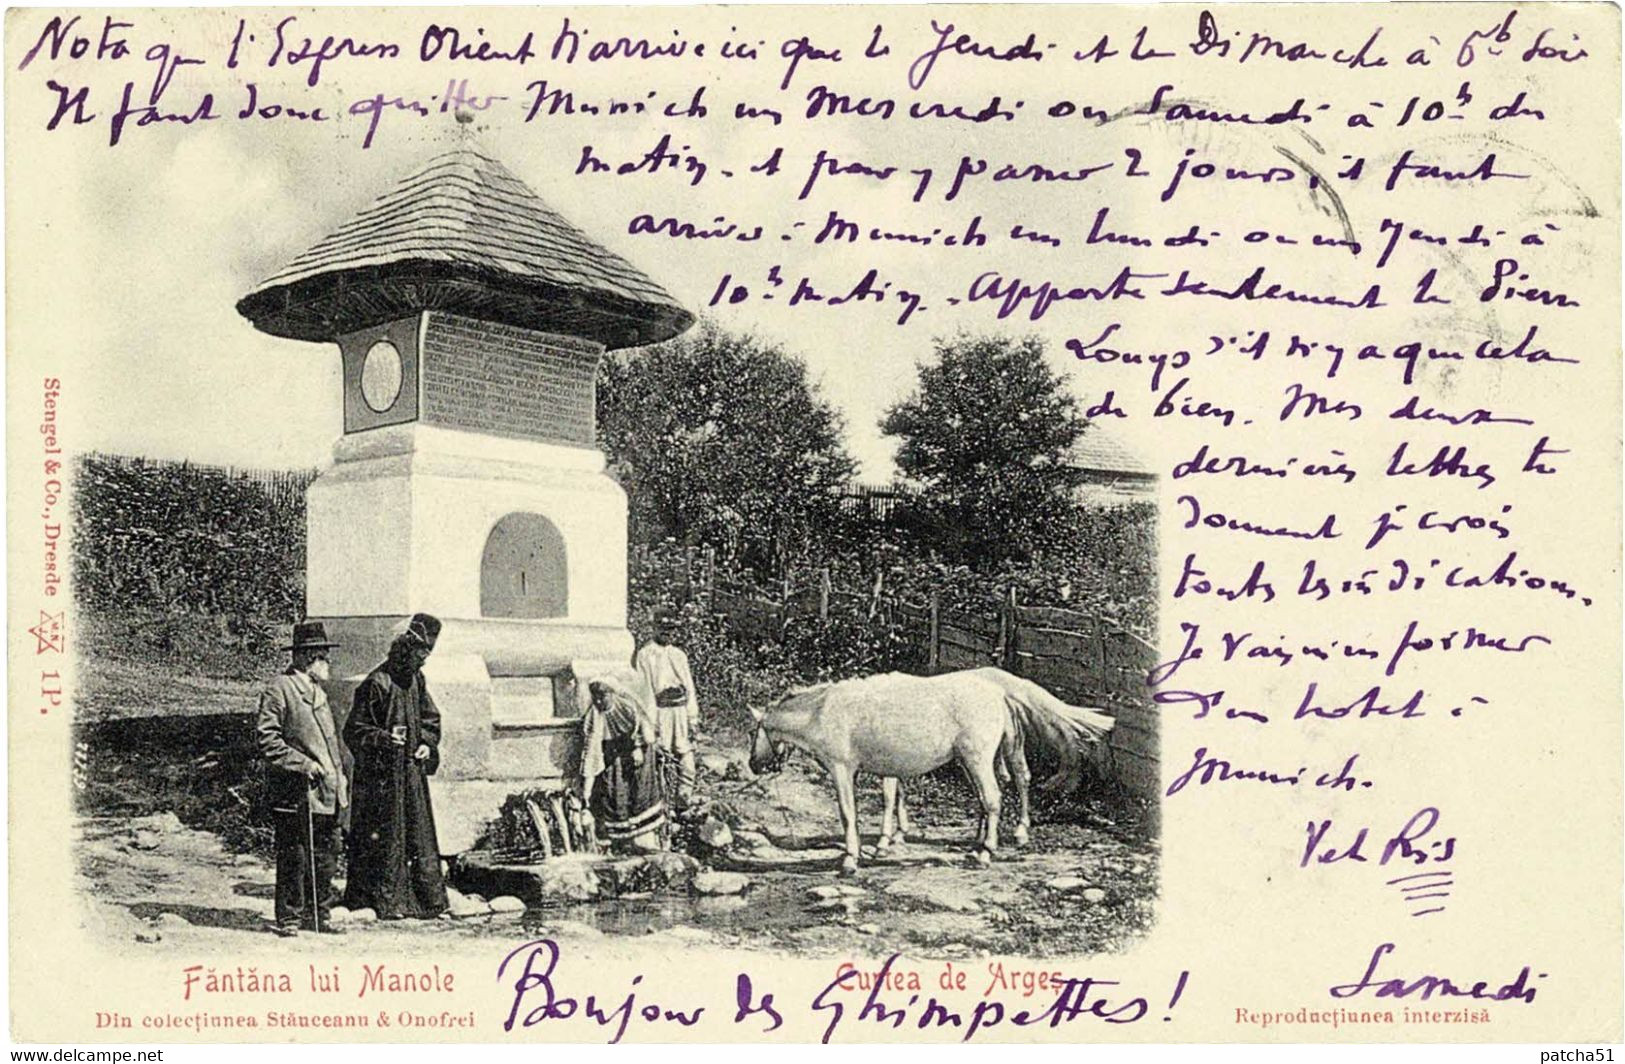 Nota que l'Express Orient n'arrive ici que le Jeudi et le Dimanche à 5h soir
Il faut donc quitter Munich un Mercredi ou Samedi à 10h du
matin. et pour y passer 2 jours, il faut
arriver à Munich un lundi ou un Jeudi à
10h matin. Apporte seulement le Pierre
Louys s'il n'y a que cela
de bien. Mes deux
dernières lettres te
donnent je crois
toutes les indications.
Je vais m'informer
d'un hotel à
Munich.
Samedi
Bonjour des Ghimpettes!
Făntăna lui Manole
Curtea de Argeș
Din colecțiunea Stăuceanu & Onofrei
Reproducțiunea interzisă
Stengel & Co., Dresde
1 P.
www.delcampe.net
patcha51